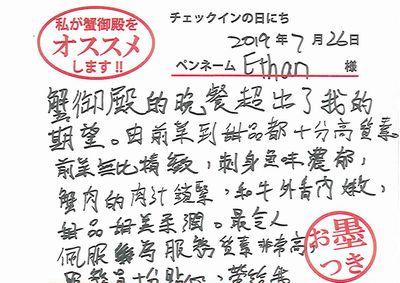 私が蟹御殿を
オススメ
します!!
チェックインの日にち
2019年7月26日
ペンネーム Ethan 様
蟹御殿的晚餐超出了我的
期望。由前菜到甜品都十分高質素。
前菜無比精緻，刺身魚味濃郁，
蟹肉的肉汁鎖緊，和牛外香內嫩，
甜品甜美柔潤。最令人
佩服為服務質素非常高，
お墨
つき